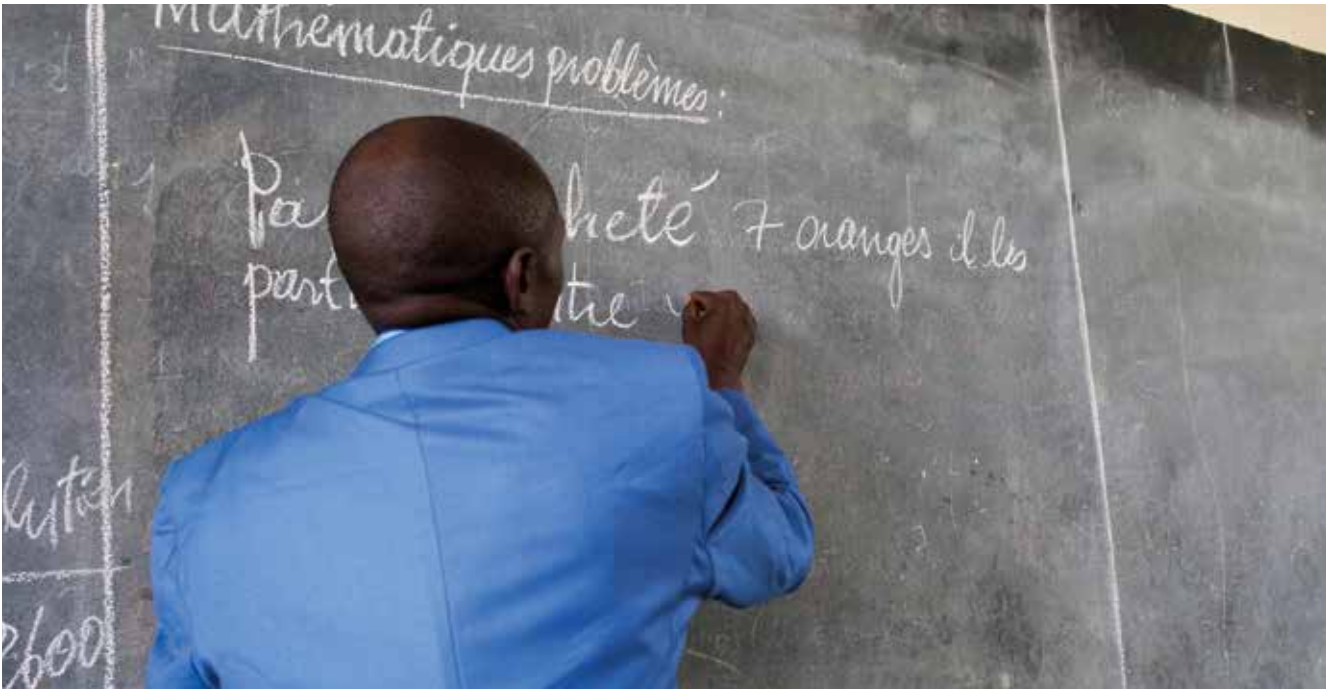 Mathématiques problèmes :
Pa heté 7 oranges il les
part tre
lution
2600